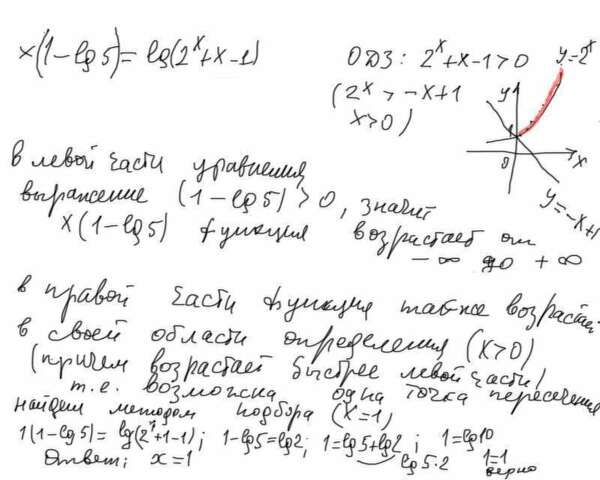 x(1-lg5)=lg(2^x+x-1)
ОДЗ: 2^x+x-1>0
(2^x>-x+1
x>0)
y=2^x
y
1
0
x
y=-x+1
в левой части уравнения,
выражение (1-lg5)>0, значит
x(1-lg5) функция возрастает от
-∞ до +∞
в правой части функция также возрастает
в своей области определения (x>0)
(причем возрастает быстрее левой части)
т.е. возможна одна точка пересечения
найдем методом подбора (x=1)
1(1-lg5)=lg(2^1+1-1); 1-lg5=lg2; 1=lg5+lg2; 1=lg10
lg5·2 1=1
Ответ: x=1 верно